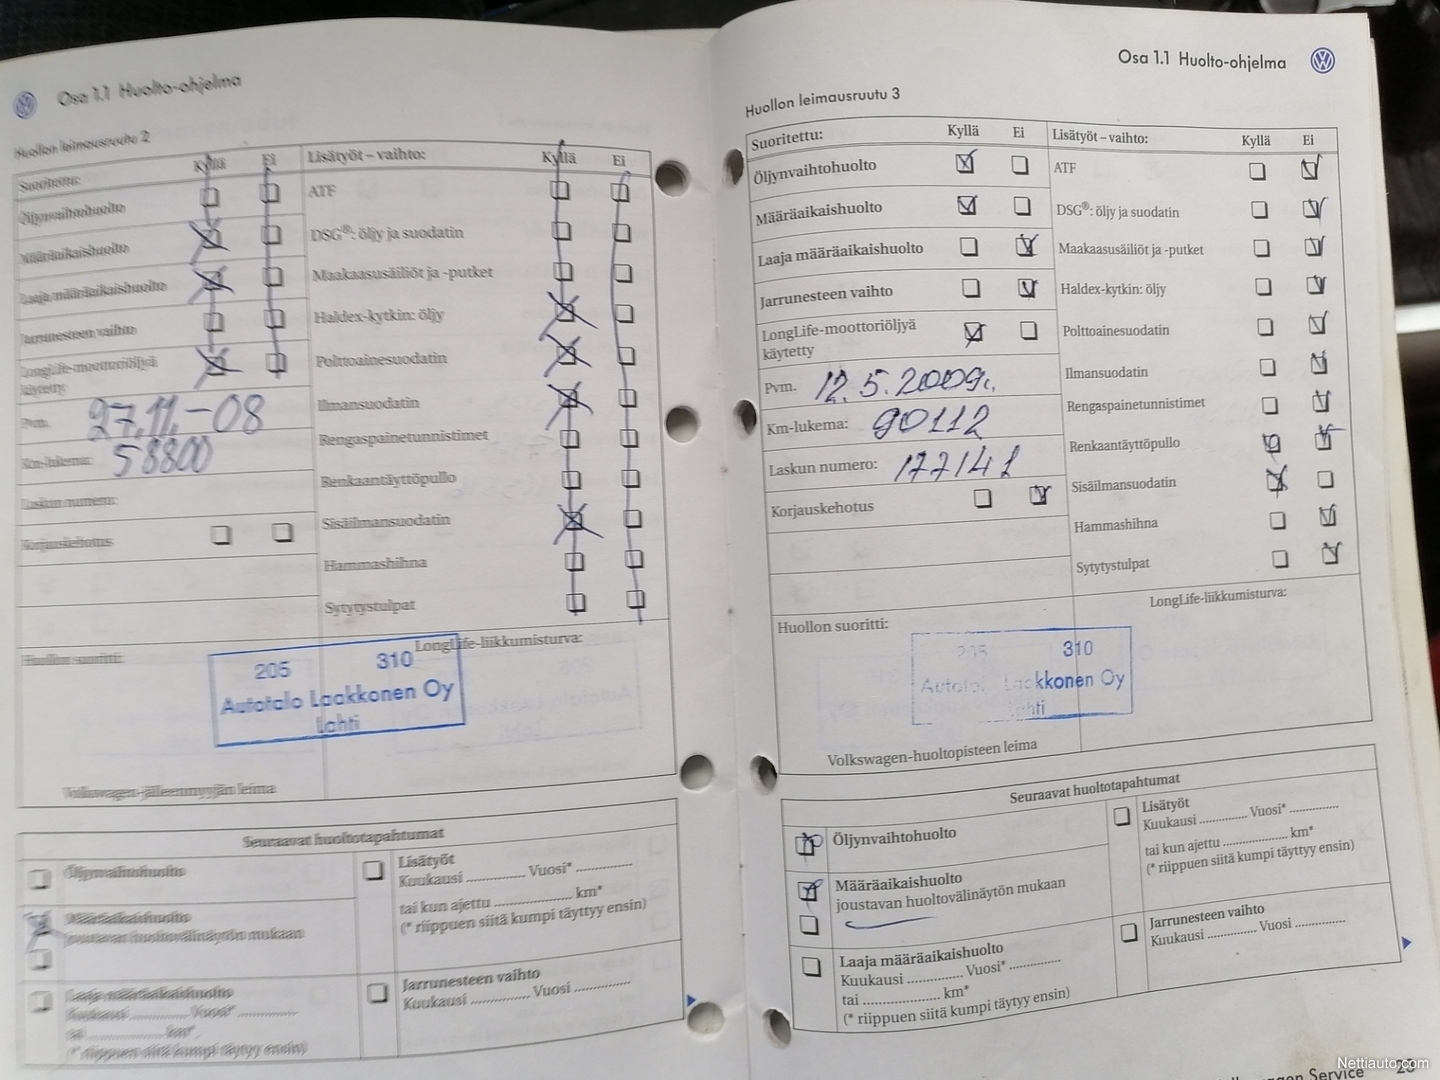 Osa 1.1 Huolto-ohjelma
Huollon leimausruutu 2
Suoritettu: Kyllä Ei
Öljynvaihtohuolto
Määräaikaishuolto
Laaja määräaikaishuolto
Jarrunesteen vaihto
LongLife-moottoriöljyä
käytetty
Pvm. 27.11.-08
Km-lukema: 58800
Laskun numero:
Korjauskehotus
Lisätyöt – vaihto: Kyllä Ei
ATF
DSG®: öljy ja suodatin
Maakaasusäiliöt ja -putket
Haldex-kytkin: öljy
Polttoainesuodatin
Ilmansuodatin
Rengaspainetunnistimet
Renkaantäyttöpullo
Sisäilmansuodatin
Hammashihna
Sytytystulpat
Huollon suoritti:
LongLife-liikkumisturva:
205 310
Autotalo Laakkonen Oy
Lahti
Volkswagen-jälleenmyyjän leima
Seuraavat huoltotapahtumat
Öljynvaihtohuolto
Määräaikaishuolto
joustavan huoltovälinäytön mukaan
Laaja määräaikaishuolto
Kuukausi .............. Vuosi* ..............
tai .................... km*
(* riippuen siitä kumpi täytyy ensin)
Lisätyöt
Kuukausi .............. Vuosi* ..............
tai kun ajettu .................... km*
(* riippuen siitä kumpi täyttyy ensin)
Jarrunesteen vaihto
Kuukausi .............. Vuosi ..............
Osa 1.1 Huolto-ohjelma
Huollon leimausruutu 3
Suoritettu: Kyllä Ei
Öljynvaihtohuolto
Määräaikaishuolto
Laaja määräaikaishuolto
Jarrunesteen vaihto
LongLife-moottoriöljyä
käytetty
Pvm. 12.5.2009.
Km-lukema: 90112
Laskun numero: 177141
Korjauskehotus
Lisätyöt – vaihto: Kyllä Ei
ATF
DSG®: öljy ja suodatin
Maakaasusäiliöt ja -putket
Haldex-kytkin: öljy
Polttoainesuodatin
Ilmansuodatin
Rengaspainetunnistimet
Renkaantäyttöpullo
Sisäilmansuodatin
Hammashihna
Sytytystulpat
Huollon suoritti:
LongLife-liikkumisturva:
205 310
Autotalo Laakkonen Oy
Lahti
Volkswagen-huoltopisteen leima
Seuraavat huoltotapahtumat
Öljynvaihtohuolto
Määräaikaishuolto
joustavan huoltovälinäytön mukaan
Laaja määräaikaishuolto
Kuukausi .............. Vuosi* ..............
tai .................... km*
(* riippuen siitä kumpi täytyy ensin)
Lisätyöt
Kuukausi .............. Vuosi* ..............
tai kun ajettu .................... km*
(* riippuen siitä kumpi täyttyy ensin)
Jarrunesteen vaihto
Kuukausi .............. Vuosi ..............
Service
Nettiauto.com